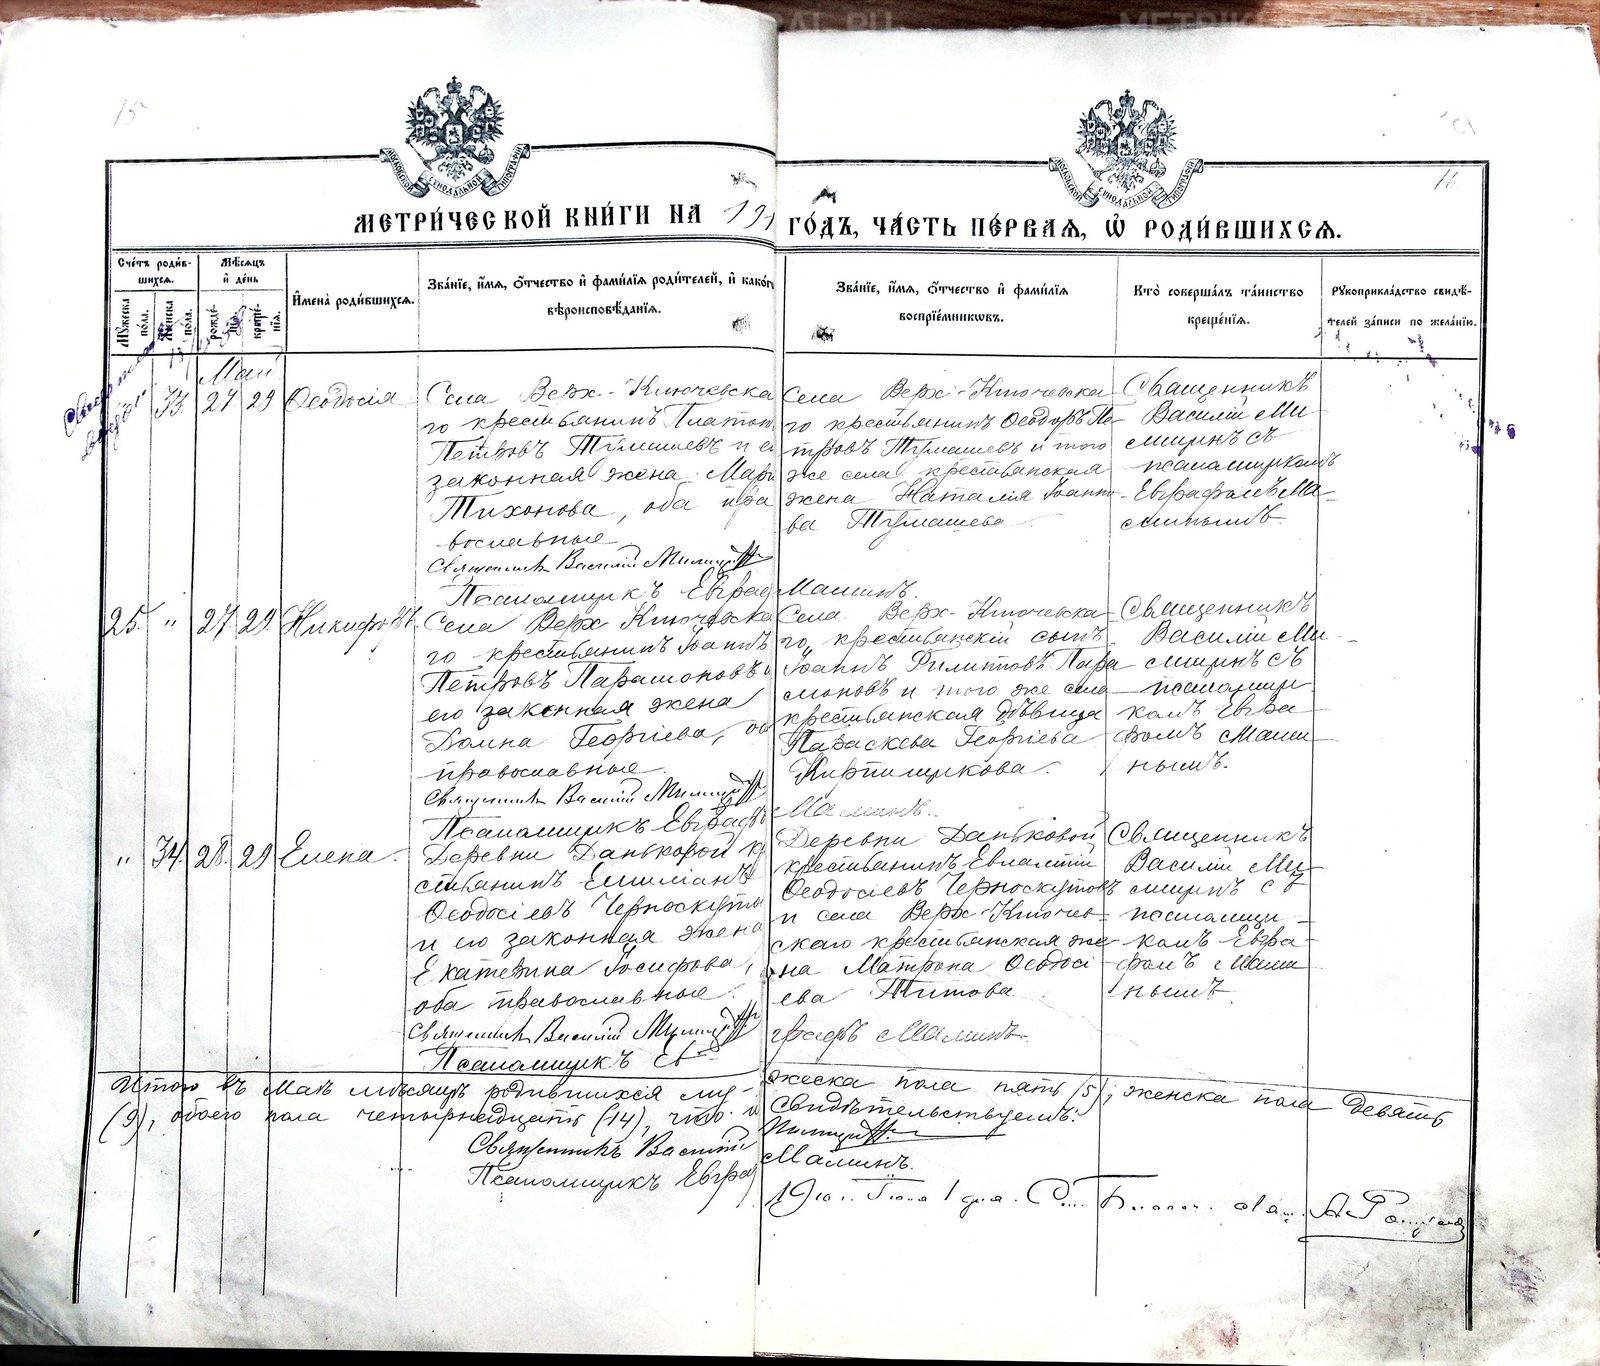 15
16
МОСКОВСКОЙ СѴНОДАЛЬНОЙ ТИПОГРАФІИ
МОСКОВСКОЙ СѴНОДАЛЬНОЙ ТИПОГРАФІИ
МЕТРИ́ЧЕСКОЙ КНИ́ГИ НА 191 ГО́ДЪ, ЧА́СТЬ ПЕ́РВАЯ, Ѡ РОДИ́ВШИХСЯ.
Сче́тъ роди́в-
шихся.
Му́жеска по́ла.
Же́нска по́ла.
Мѣ́сяцъ
и҆ де́нь
рожде́нія.
креще́нія.
И҆мена̀ роди́вшихся.
Зва́ніе, и҆́мя, ѻ҆́тчество и҆ фами́лія роди́телей, и҆ како́гѡ
вѣроисповѣ́данія.
Зва́ніе, и҆́мя, ѻ҆́тчество и҆ фами́лія
воспріе́мникѡвъ.
Кто̀ соверша́лъ та́инство
креще́нія.
Рꙋкоприкла́дство свидѣ́-
телей за́писи по жела́нію.
Май
33 27 29 Ѳеодосія
Села Верх-Ключевска
го крестьянинъ Платон
Петровъ Тумашевъ и е
законная жена Мари
Тихонова, оба пра
вославные
Священникъ Василій Милицинъ
Псаломщикъ Евграф
Села Верх-Ключевска
го крестьянинъ Ѳеодоръ Пе-
тровъ Тумашевъ и того
же села крестьянская
жена Наталія Іоанно-
ва Тумашева
Маминъ.
Священникъ
Василій Ми-
лицинъ съ
псаломщикомъ
Евграфомъ Ма-
минымъ.
25. " 27 29 Никифоръ
Села Верх Ключевска
го крестьянинъ Іоаннъ
Петровъ Парамоновъ и
его законная жена
Домна Георгіева, об
православные.
Священникъ Василій Милицинъ
Псаломщикъ Евграфъ
Села Верх-Ключевска-
го, крестьянскій сынъ
Іоаннъ Филипповъ Пара
моновъ и того же села
крестьянская дѣвица
Параскева Георгіева
Кирпищикова.
Маминъ.
Священникъ
Василій Ми-
лицинъ съ
псаломщи
комъ Евгра-
фомъ Мами-
нымъ.
" 34. 28. 29 Елена.
Деревни Даньковой кр
стьянинъ Емиліанъ
Ѳеодосіевъ Черноскутов
и его законная жена
Екатерина Іосифова,
оба православные.
Священникъ Василій Милицинъ
Псаломщикъ Ев
Деревни Даньковой
крестьянинъ Евлампій
Ѳеодосіевъ Черноскутовъ
и села Верх-Ключев-
скаго крестьянская же-
на Матрона Ѳеодосі-
ева Титова
графъ Маминъ.
Священникъ
Василій Ми-
лицинъ съ
псаломщи-
комъ Евгра-
фомъ Мами
нымъ.
Итого въ Маѣ мѣсяцѣ родившихся му-жеска пола пять (5), женска пола девять
(9), обоего пола четырнадцать (14), что и свидѣтельствуемъ:
Священникъ Василій Милицинъ
Псаломщикъ Евграф Маминъ.
1910 г. Іюня 1 дня.